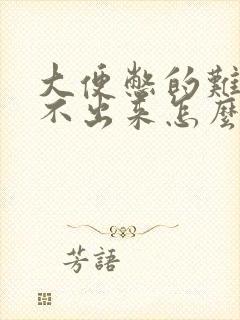 大便憋的難
不出來怎麼
芳語